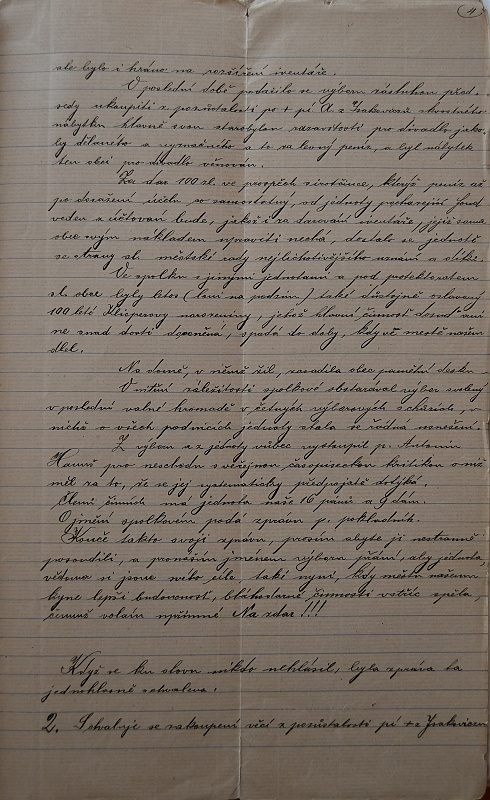 4
ale bylo i hráno na rozšíření inventáře.
V poslední době podařilo se výboru zásluhou před-
sedy zakoupiti z pozůstalosti po † pí. A. z Isakoviců skvostného
nábytku hlavně svou starobylou vzácností pro divadlo jako
by dělaného a vyznačného a to za levný peníz, a byl nábytek
ten obcí pro divadlo věnován.
Za dar 100 zl. ve prospěch sirotčince, kterýž peníz až
po dosažení účelu co samostatný, od jednoty pocházející fond
veden a účtován bude, jakož i za darování inventáře, jejž sama
obec svým nákladem upraviti nechá, dostalo se jednotě
se strany sl. městské rady nejlichotivějšího uznání a díků.
Ve spolku s jinými jednotami a pod protektorátem
sl. obce byly letos (loni na podzim) také důstojně oslaveny
100 leté Klicperovy narozeniny, jehož hlavní činnost dosud ani
ne snad dosti doceněná, spadá do doby, kdy v městě našem
dlel.
Na domě, v němž žil, zasadila obec pamětní desku.
Vnitřní záležitosti spolkové obstarával výbor zvolený
v poslední valné hromadě v četných výborových schůzích, o
nichž o všech podnicích jednoty stala se řádná usnesení.
Z výboru a z jednoty vůbec vystoupil p. Antonín
Hanuš pro neshodu s veřejnou časopiseckou kritikou o níž
měl za to, že se jej systematicky předpojatě dotýká.
Členů činných má jednota naše 16 pánů a 9 dam.
O jmění spolkovém podá zprávu p. pokladník.
Konče takto svoji zprávu, prosím abyste ji nestranně
posoudili, a pronáším jménem výboru přání, aby jednota,
vědoma si jsouc svého cíle, také nyní, kdy městu našemu
kyne lepší budoucnost, blahodárné činnosti vstříc spěla,
čemuž volám upřímné Na zdar!!!
Když se ku slovu nikdo nehlásil, byla zpráva ta
jednohlasně schválena.
2. Schvaluje se zakoupení věcí z pozůstalosti pí † z Isakovicu